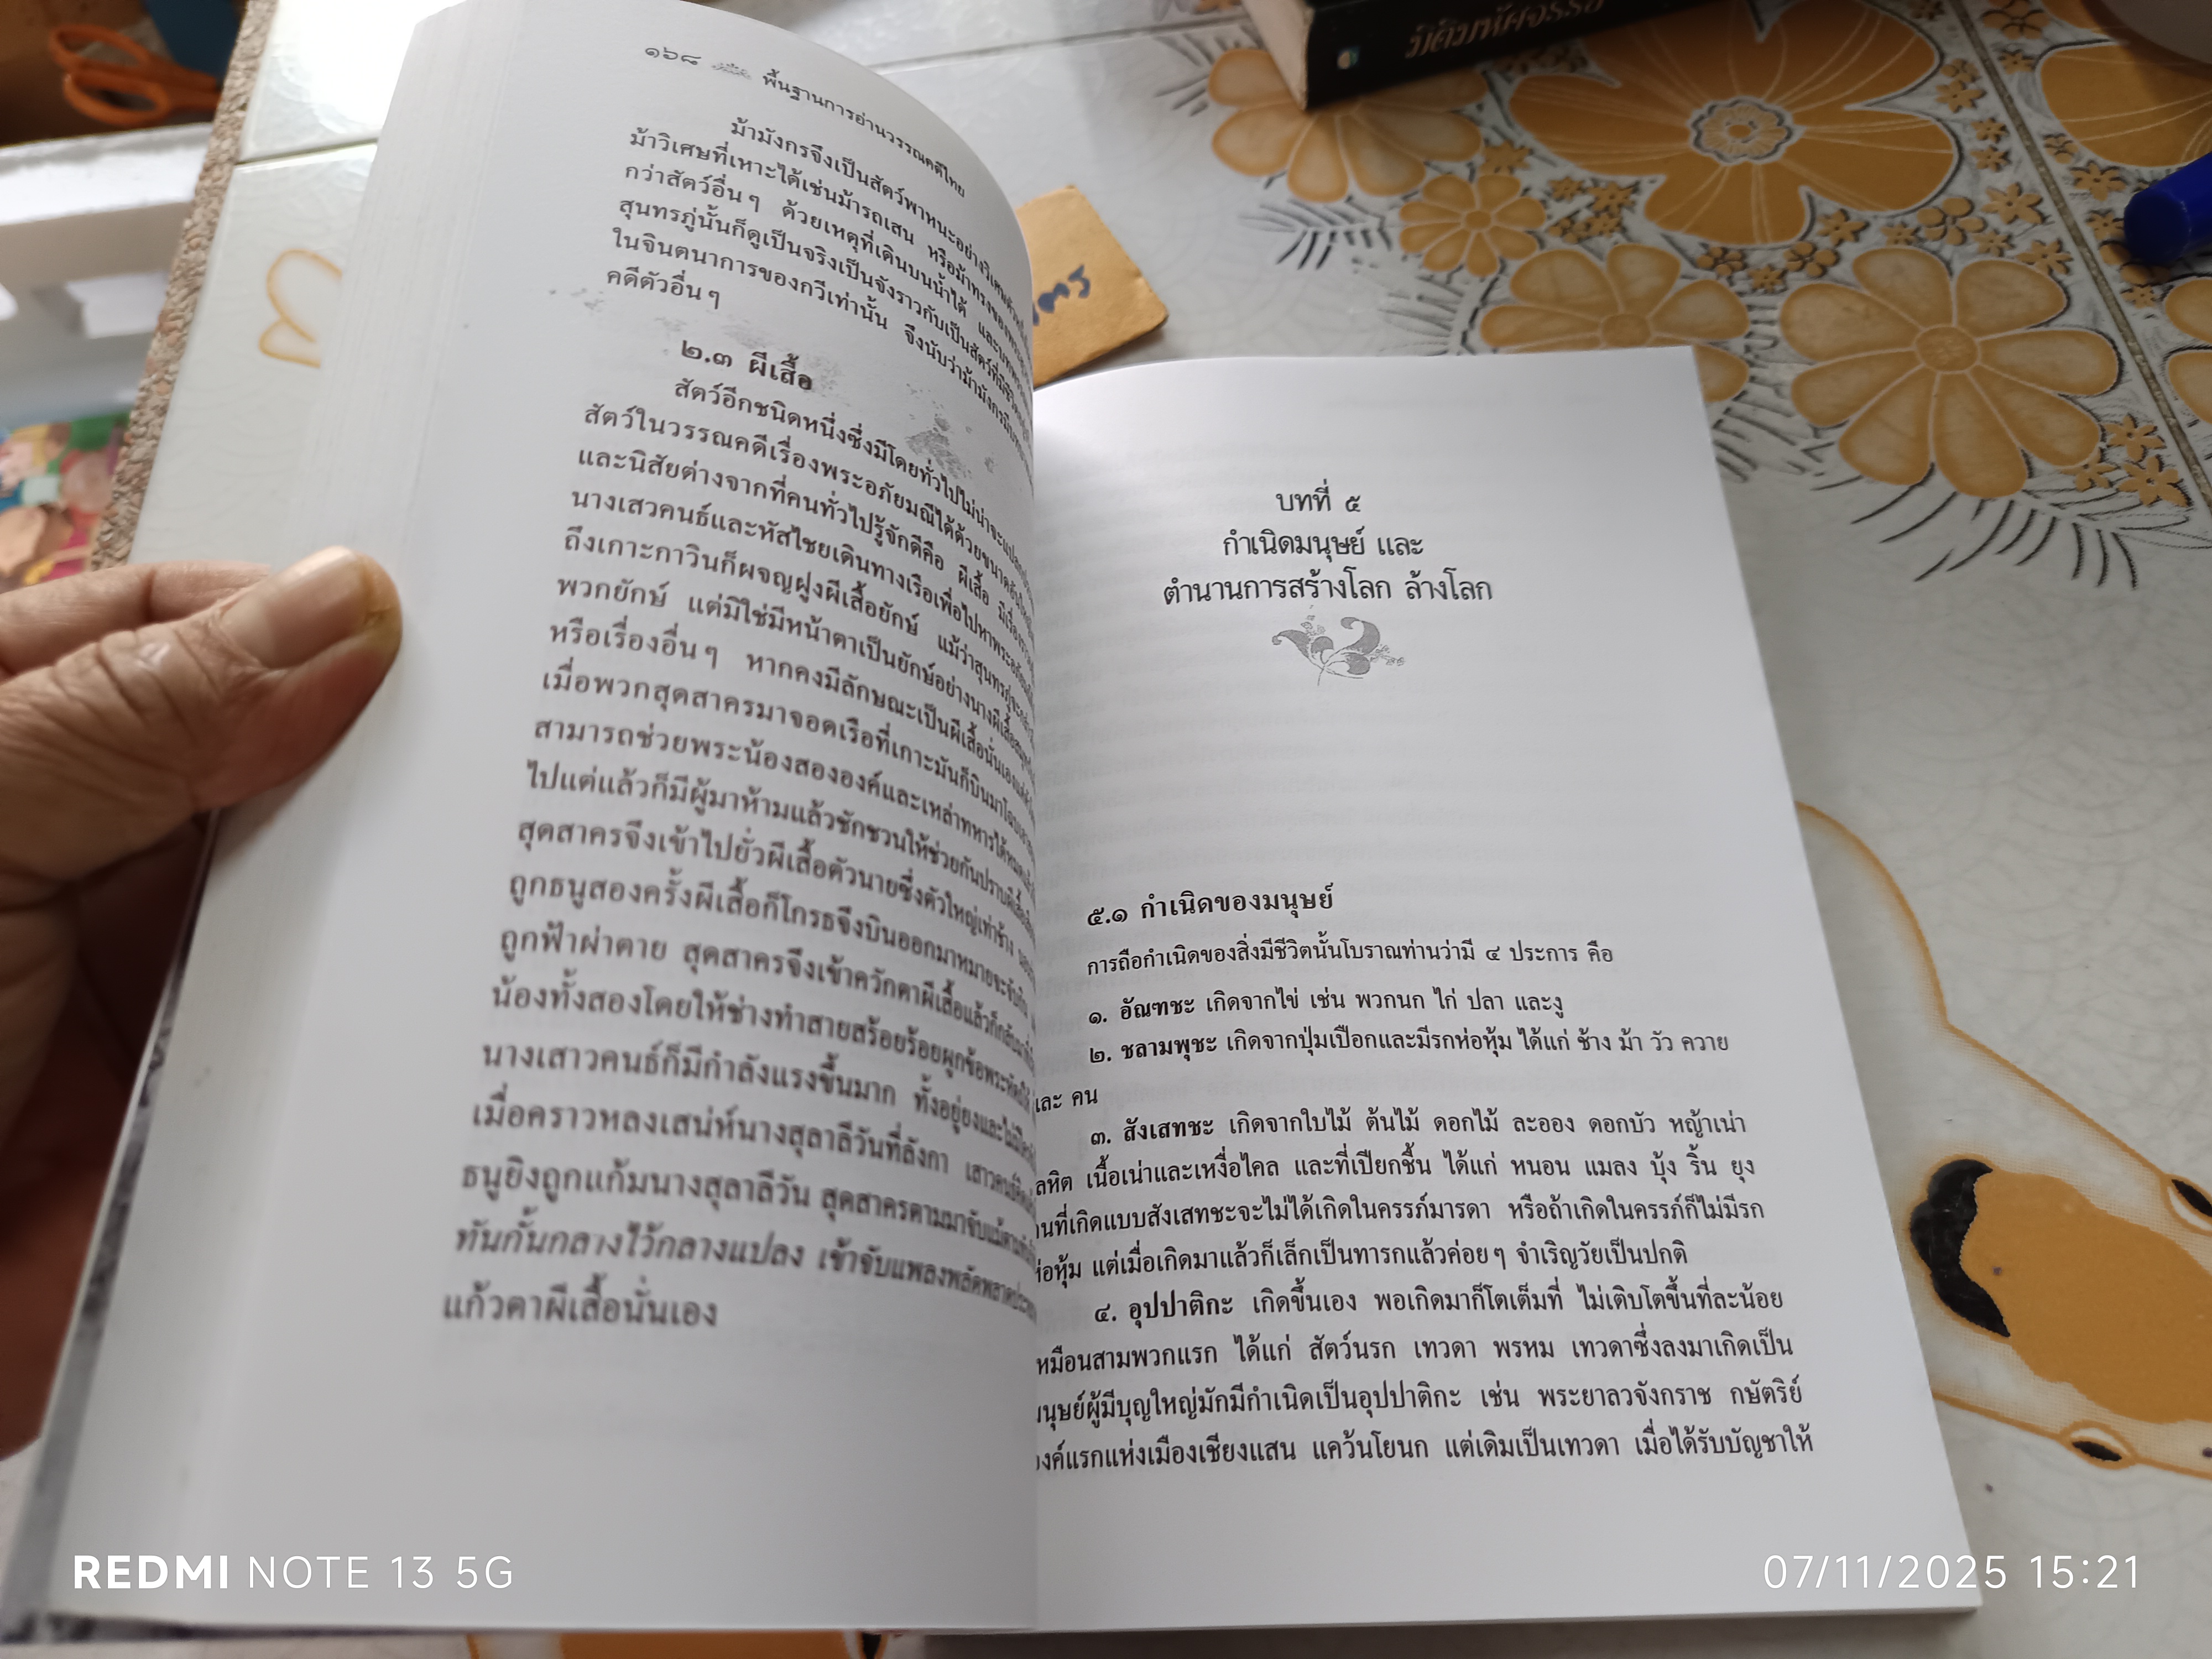 ๑๖๘ พื้นฐานการอ่านวรรณคดีไทย
ม้ามังกรจึงเป็นสัตว์พาหนะอย่างวิเศษ
ม้าวิเศษที่เหาะได้เช่นม้ารถเสน หรือม้าทรงของพระ
กว่าสัตว์อื่นๆ ด้วยเหตุที่เดินบนน้ำได้ และ
สุนทรภู่นั้นก็ดูเป็นจริงเป็นจังราวกับเป็นสัตว์ที่มีชีวิต
ในจินตนาการของกวีเท่านั้น จึงนับว่าม้ามังกร
คดีตัวอื่นๆ
๒.๓ ผีเสื้อ
สัตว์อีกชนิดหนึ่งซึ่งมีโดยทั่วไปไม่น่าจะ
สัตว์ในวรรณคดีเรื่องพระอภัยมณีได้ด้วยขนาด
และนิสัยต่างจากที่คนทั่วไปรู้จักดีคือ ผีเสื้อ
นางเสวคนธ์และหัสไชยเดินทางเรือเพื่อไปหา
ถึงเกาะกาวินก็ผจญฝูงผีเสื้อยักษ์ แม้ว่าสุนทรภู่จะ
พวกยักษ์ แต่มิใช่มีหน้าตาเป็นยักษ์อย่างนางผีเสื้อสมุทร
หรือเรื่องอื่นๆ หากคงมีลักษณะเป็นผีเสื้อนั่นเอง
เมื่อพวกสุดสาครมาจอดเรือที่เกาะมันก็บินมา
สามารถช่วยพระน้องสององค์และเหล่าทหารได้
ไปแต่แล้วก็มีผู้มาห้ามแล้วชักชวนให้ช่วยกันปราบผีเสื้อ
สุดสาครจึงเข้าไปยั่วผีเสื้อตัวนายซึ่งตัวใหญ่เท่าช้าง
ถูกธนูสองครั้งผีเสื้อก็โกรธจึงบินออกมาหมายจะจับกิน
ถูกฟ้าผ่าตาย สุดสาครจึงเข้าควักตาผีเสื้อแล้วก็กลับมา
น้องทั้งสองโดยให้ช่างทำสายสร้อยร้อยผูกข้อพระหัตถ์
นางเสาวคนธ์ก็มีกำลังแรงขึ้นมาก ทั้งอยู่ยงและ
เมื่อคราวหลงเสน่ห์นางสุลาลีวันที่ลังกา เสาวคนธ์
ธนูยิงถูกแก้มนางสุลาลีวัน สุดสาครตามมาจับ
ทันกั้นกลางไว้กลางแปลง เข้าจับแพลงพลัดพลาด
แก้วตาผีเสื้อนั่นเอง
บทที่ ๕
กำเนิดมนุษย์ และ
ตำนานการสร้างโลก ล้างโลก
๕.๑ กำเนิดของมนุษย์
การถือกำเนิดของสิ่งมีชีวิตนั้นโบราณท่านว่ามี ๔ ประการ คือ
๑. อัณฑชะ เกิดจากไข่ เช่น พวกนก ไก่ ปลา และงู
๒. ชลามพุชะ เกิดจากปุ่มเปือกและมีรกห่อหุ้ม ได้แก่ ช้าง ม้า วัว ควาย
และ คน
๓. สังเสทชะ เกิดจากใบไม้ ต้นไม้ ดอกไม้ ละออง ดอกบัว หญ้าเน่า
ลหิต เนื้อเน่าและเหงื่อไคล และที่เปียกชื้น ได้แก่ หนอน แมลง บุ้ง ริ้น ยุง
นที่เกิดแบบสังเสทชะจะไม่ได้เกิดในครรภ์มารดา หรือถ้าเกิดในครรภ์ก็ไม่มีรก
ห่อหุ้ม แต่เมื่อเกิดมาแล้วก็เล็กเป็นทารกแล้วค่อยๆ จำเริญวัยเป็นปกติ
๔. อุปปาติกะ เกิดขึ้นเอง พอเกิดมาก็โตเต็มที่ ไม่เติบโตขึ้นทีละน้อย
หมือนสามพวกแรก ได้แก่ สัตว์นรก เทวดา พรหม เทวดาซึ่งลงมาเกิดเป็น
มนุษย์ผู้มีบุญใหญ่มักมีกำเนิดเป็นอุปปาติกะ เช่น พระยาลวจังกราช กษัตริย์
องค์แรกแห่งเมืองเชียงแสน แคว้นโยนก แต่เดิมเป็นเทวดา เมื่อได้รับบัญชาให้
REDMI NOTE 13 5G
07/11/2025 15:21